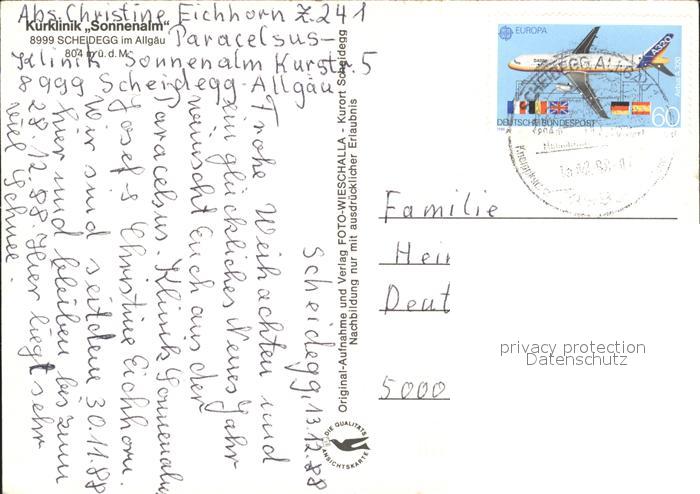 Abs. Christine Eichhorn Z. 241
Paracelsus-
Klinik Sonnenalm Kurstr. 5
8999 Scheidegg-Allgäu
Kurklinik „Sonnenalm"
8999 SCHEIDEGG im Allgäu
804 m ü. d. M.
Scheidegg, 13.12.88
Frohe Weihachten und
ein glückliches Neues Jahr
wünscht Euch aus der
Paracelsus-Klinik Sonnenalm
Josef & Christine Eichhorn.
Wir sind seit dem 30.11.88
hier und bleiben bis zum
28.12.88. Hier liegt sehr
viel Schnee.
Original-Aufnahme und Verlag FOTO-WIESCHALLA - Kurort Scheidegg
Nachbildung nur mit ausdrücklicher Erlaubnis
DIE QUALITÄTS
ANSICHTSKARTE
EUROPA
A320
Airbus A 320
DEUTSCHE BUNDESPOST
60
SCHEIDEGG, ALLGÄU
Familie
Hein
Deut
5000
privacy protection
Datenschutz